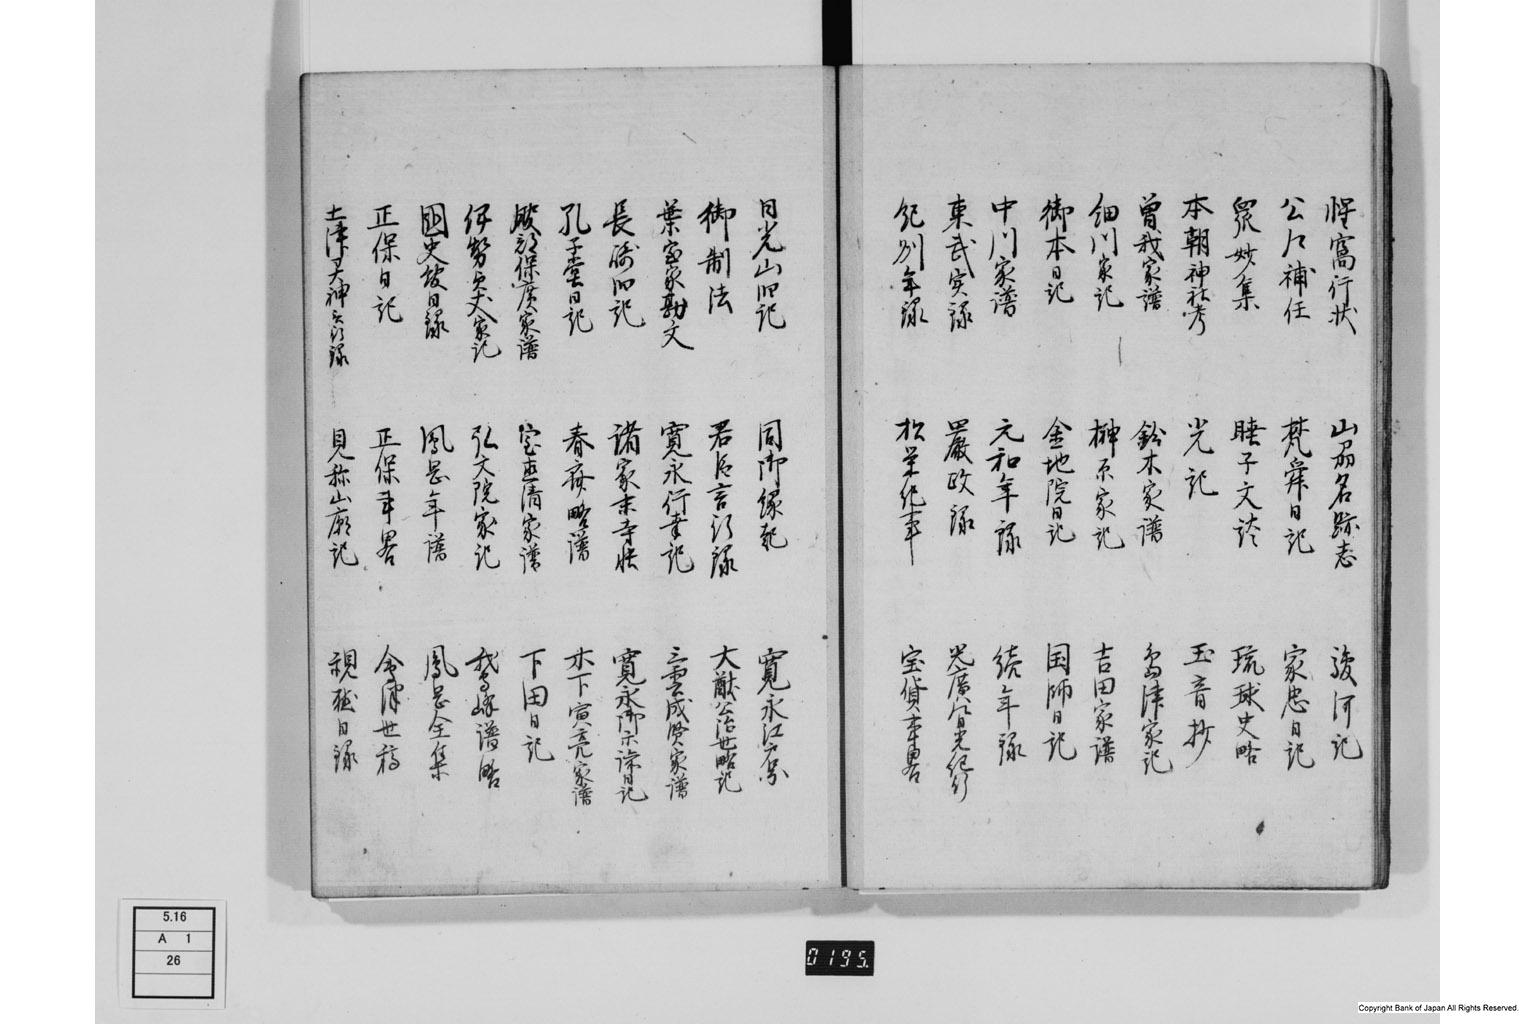 惺窩行状　山州名跡志　駿河記
公卿補任　梵舜日記　家忠日記
衆妙集　睡子文談　琉球史略
本朝神社考　光記　玉音抄
曽我家譜　鈴木家譜　島津家記
細川家記　榊原家記　吉田家譜
御本日記　金地院日記　国師日記
中川家譜　元和年録　続年録
東武実録　嚴政録　光廣卿日光紀行
紀別年録　松栄紀事　宝貨事畧
日光山旧記　同御縁起　寛永江戸
御制法　君臣言行録　大猷公治世略記
葉室家勘文　寛永行幸記　三雲成賢家譜
長崎旧記　諸家末寺帳　寛永御示諒日記
孔子堂日記　春斎略譜　木下寅亮家譜
服部保廣家譜　家譜　下田日記
伊勢貞丈家記　弘文院家記　譜略
國史放日録　鳳岡年譜　鳳岡全集
正保日記　正保事畧　会津世稿
土津大神言行録　見祢山廟記　視聴日録
5.16
A 1
26
0195.
Copyright Bank of Japan All Rights Reserved.